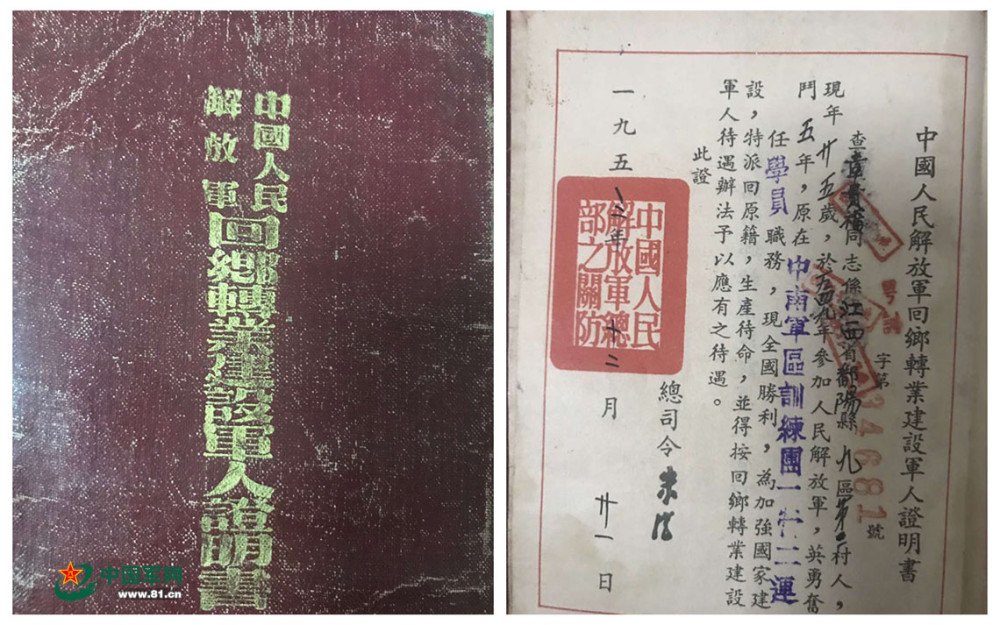 中國人民
解放軍
回鄉轉業建設軍人證明書
中国军网
www.81.cn
中國人民解放軍回鄉轉業建設軍人證明書
字第34681號
查章貴福同志係江西省鄱陽縣九區第 村人，
現年廿五歲，於 年參加人民解放軍，英勇奮
鬥五年，原在中南軍區訓練團一 二連
任學員職務，現全國勝利，為加強國家建
設，特派回原籍，生產待命，並得按回鄉轉業建設
軍人待遇辦法予以應有之待遇。
此證
總司令 朱德
中國人民
解放軍總
部之關防
一九五 年十二月廿一日